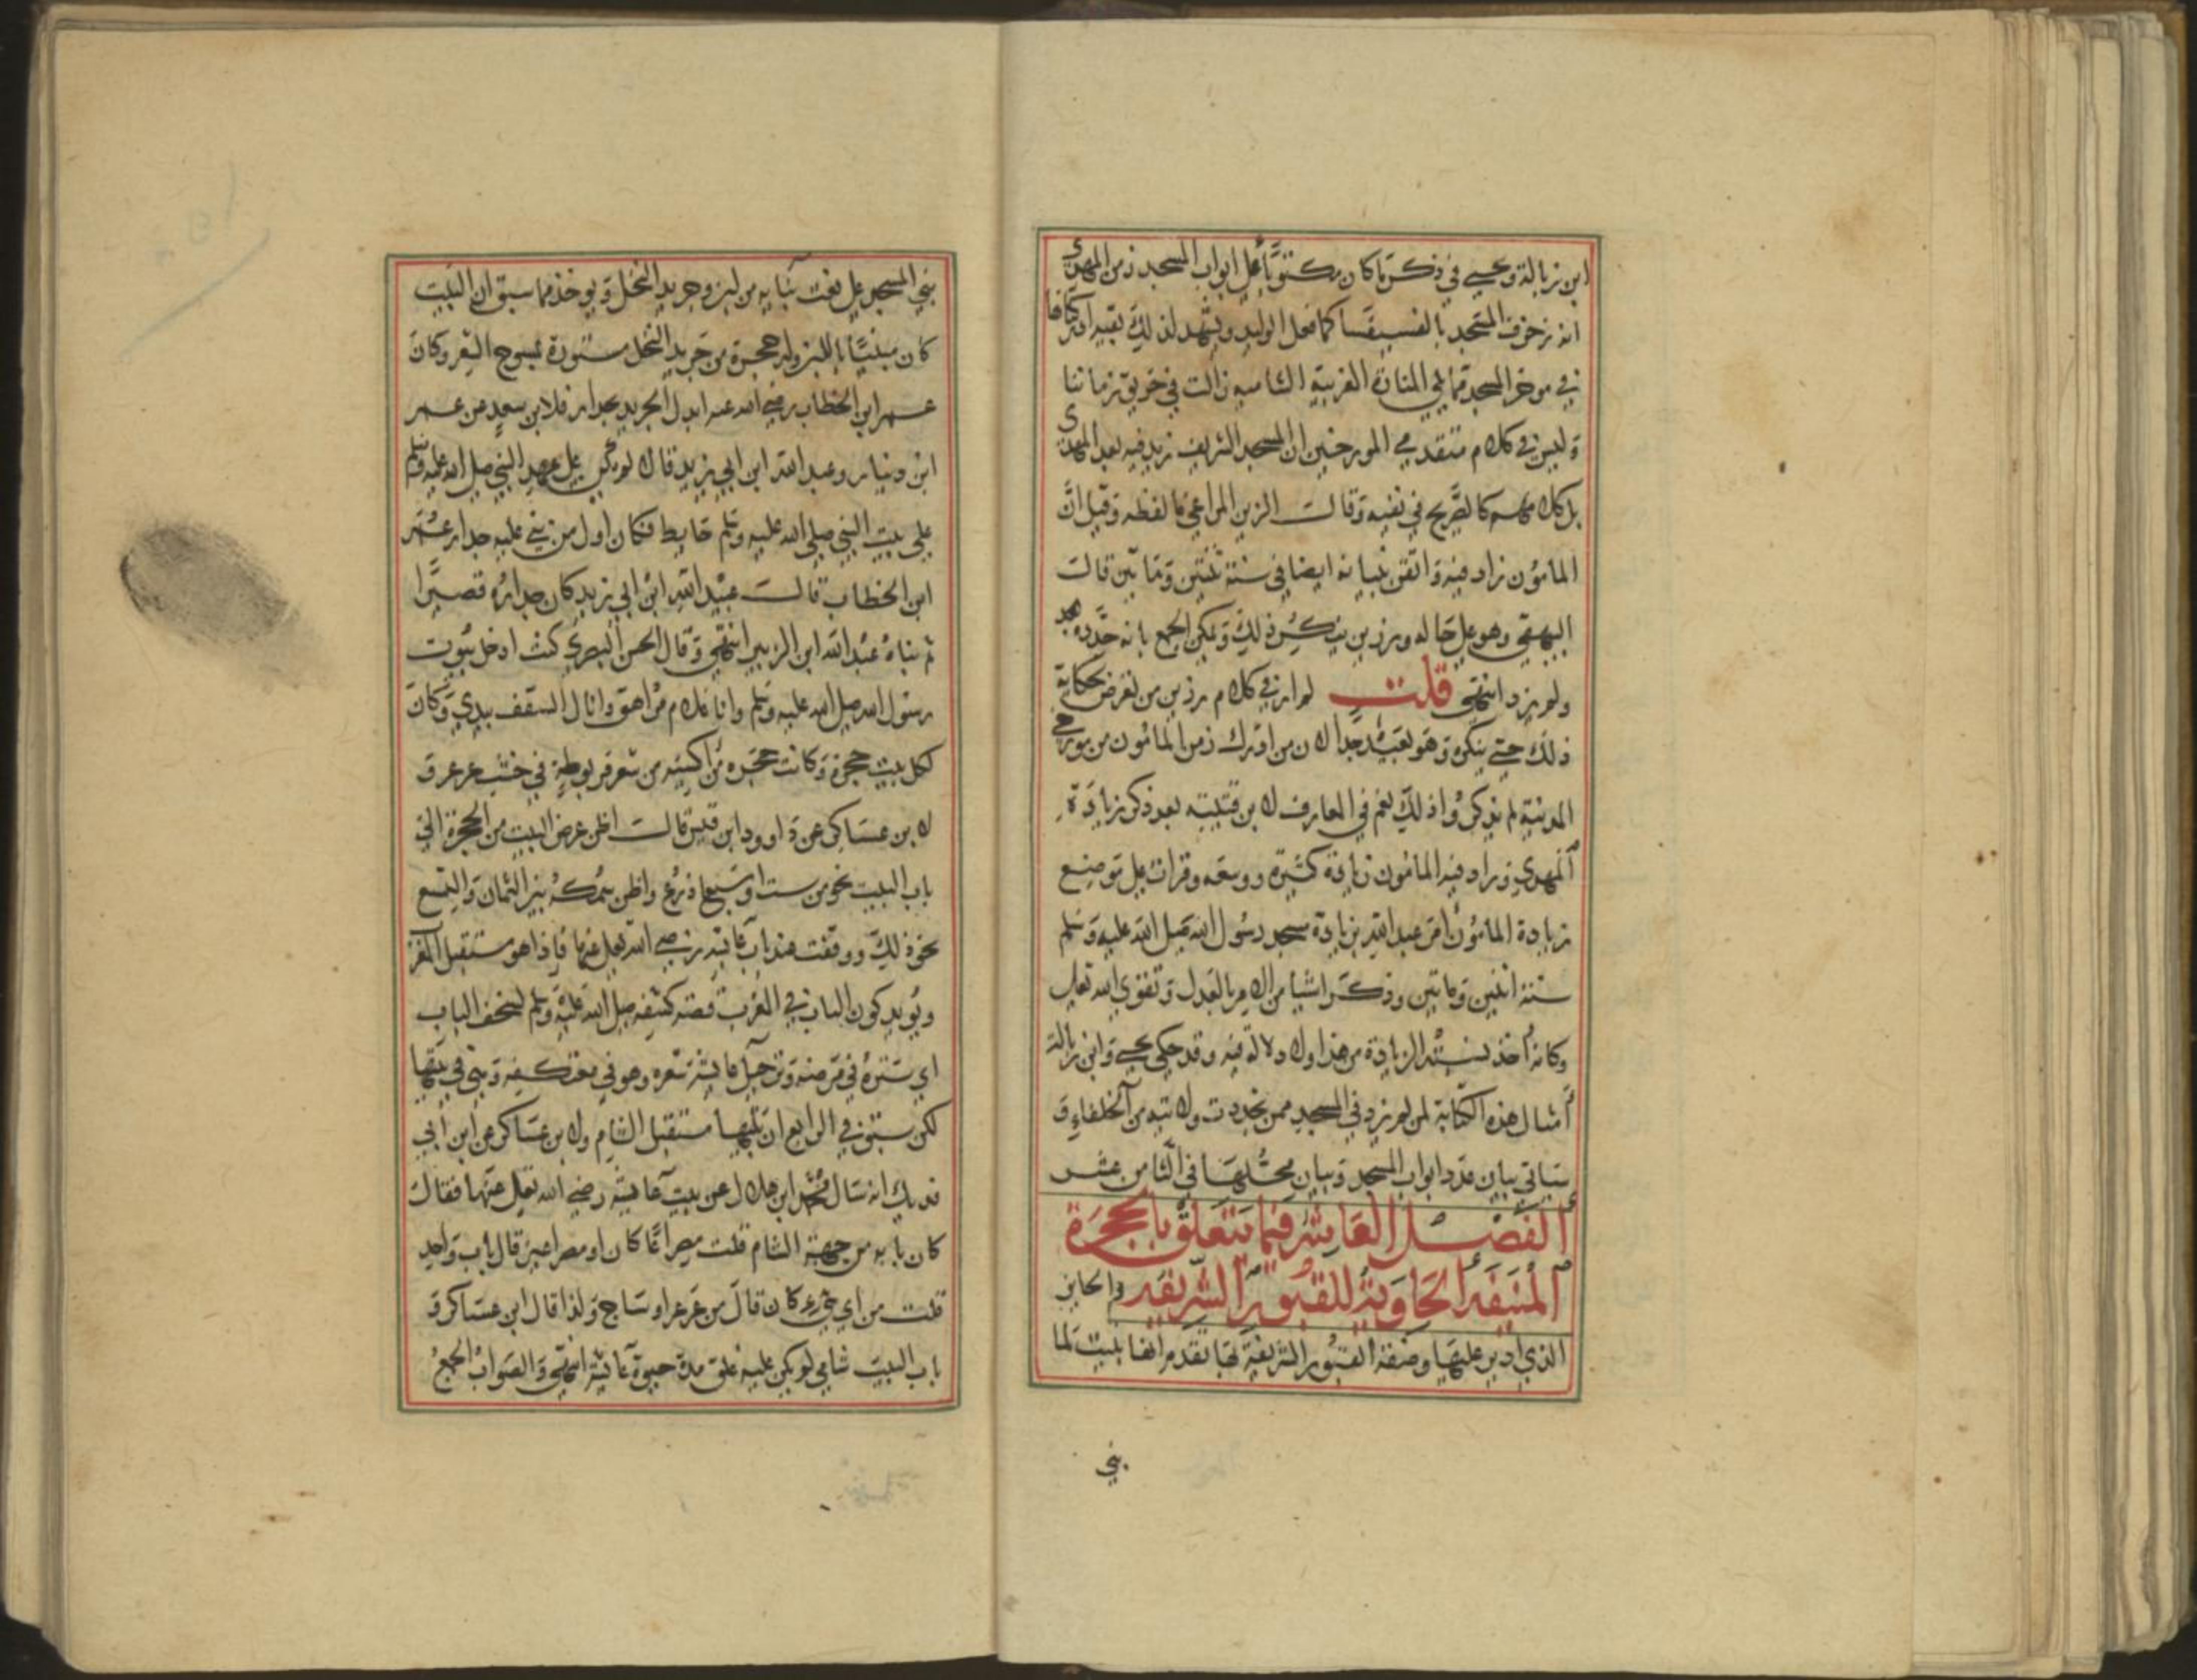 ابن زبالة ويحيى في ذكر ما كان مكتوبًا على ابواب المسجد زمن المهدي
انه زخرف المسجد بالفسيفسا كما فعل الوليد ويشهد لذلك بقية
في موخر المسجد مما يلي المنارة الغربية الشامية زالت في حريق زماننا
وليس في كلام متقدمي المورخين ان المسجد الشريف زيد فيه بعد المهدي
بل كلامهم كالصريح في نفيه وقالت الزين المراغي ما لفظه وقيل انَّ
المامون زاد فيه واتقن بنيانه ايضا في سنة ثنتين ومايتين قالت
البهقي وهو على حاله ورزين ينكر ذلك ويمكن الجمع بانه جدده
ولم يزد انتهى قلت لم ار في كلام رزين من لغرض حكاية
ذلك حتى ينكره وهو بعيد جدا لان من ادرك زمن المامون من مورخي
المدينة لم يذكروا ذلك نعم في المعارف لابن قتيبة بعد ذكر زيادة
المهدي وزاد فيه المامون زيادة كثيرة ووسعه وقرات على موضع
زيادة المامون امر عبد الله بزيادة مسجد رسول الله صلى الله عليه وسلم
سنة اثنين ومايتين وذكر اشيا من الامر بالعدل وتقوى الله تعالى
وكانه اخذ نسبة الزيادة من هذا ولا دلالة فيه وقد حكى يحيى وابن زبالة
امثال هذه الكتابة لمن لم يزد في المسجد ممن تجددت ولايته من الخلفاء و
سياتي بيان عدد ابواب المسجد وبيان محلها في الثامن عشر
الفصل العاشر فيما يتعلق بالحجرة
المنيفة الحاوية للقبور الشريفة والحايز
الذي ادير عليها وصفة القبور الشريفة بها تقدم انفا بيت لما
بني
بني المسجد على نعت بنايه من لبن وجريد النخل ويوخذ مما سبق ان البيت
كان مبنيًا باللبن وله حجرة من جريد النخل مستورة بمسوح الشعر وكان
عمر ابن الخطاب رضي الله عنه ابدل الجريد بجدار فلابن سعد عن عمر
ابن دينار وعبد الله ابن ابي يزيد قالا لم يكن على عهد النبي صلى الله عليه وسلم
على بيت النبي صلى الله عليه وسلم حايط فكان اول من بنى عليه جدار عُمر
ابن الخطاب قالت عبيد الله ابن ابي يزيد كان جداره قصيرا
ثم بناه عبد الله ابن الزبير انتهى وقال الحسن البصري كنت ادخل بيوت
رسول الله صلى الله عليه وسلم وانا غلام مراهق وانال السقف بيدي وكان
لكل بيت حجرة وكانت حجره من اكسية من شعر مربوطة في خشب عرعر و
لابن عساكر عن داوود ابن قيس قالت اظن عرض البيت من الحجرة الى
باب البيت نحو من ست او سبع اذرع واظن سمكه بين الثمان والتسع
نحو ذلك ووقفت عند باب عايشه رضي الله تعالى عنها فاذا هو مستقبل المغرب
ويويد كون الباب في الغرب قصة كشفه صلى الله عليه وسلم لسجف الباب
اي ستره في مرضه وترجيل عايشة شعره وهو في معتكفه وهي في بيتها
لكن سبق في الرابع ان بابها مستقبل الشام ولابن عساكر عن ابن ابي
فديك انه سال محمد ابن هلال عن بيت عايشة رضي الله تعالى عنها فقال
كان بابه من جهة الشام قلت مصراعًا كان او مصراعين قال باب واحد
قلت من اي شيء كان قال من عرعر او ساج ولذا قال ابن عساكر و
باب البيت شامي لم يكن عليه غلق مدة حيوة عايشة انتهى والصواب الجمع